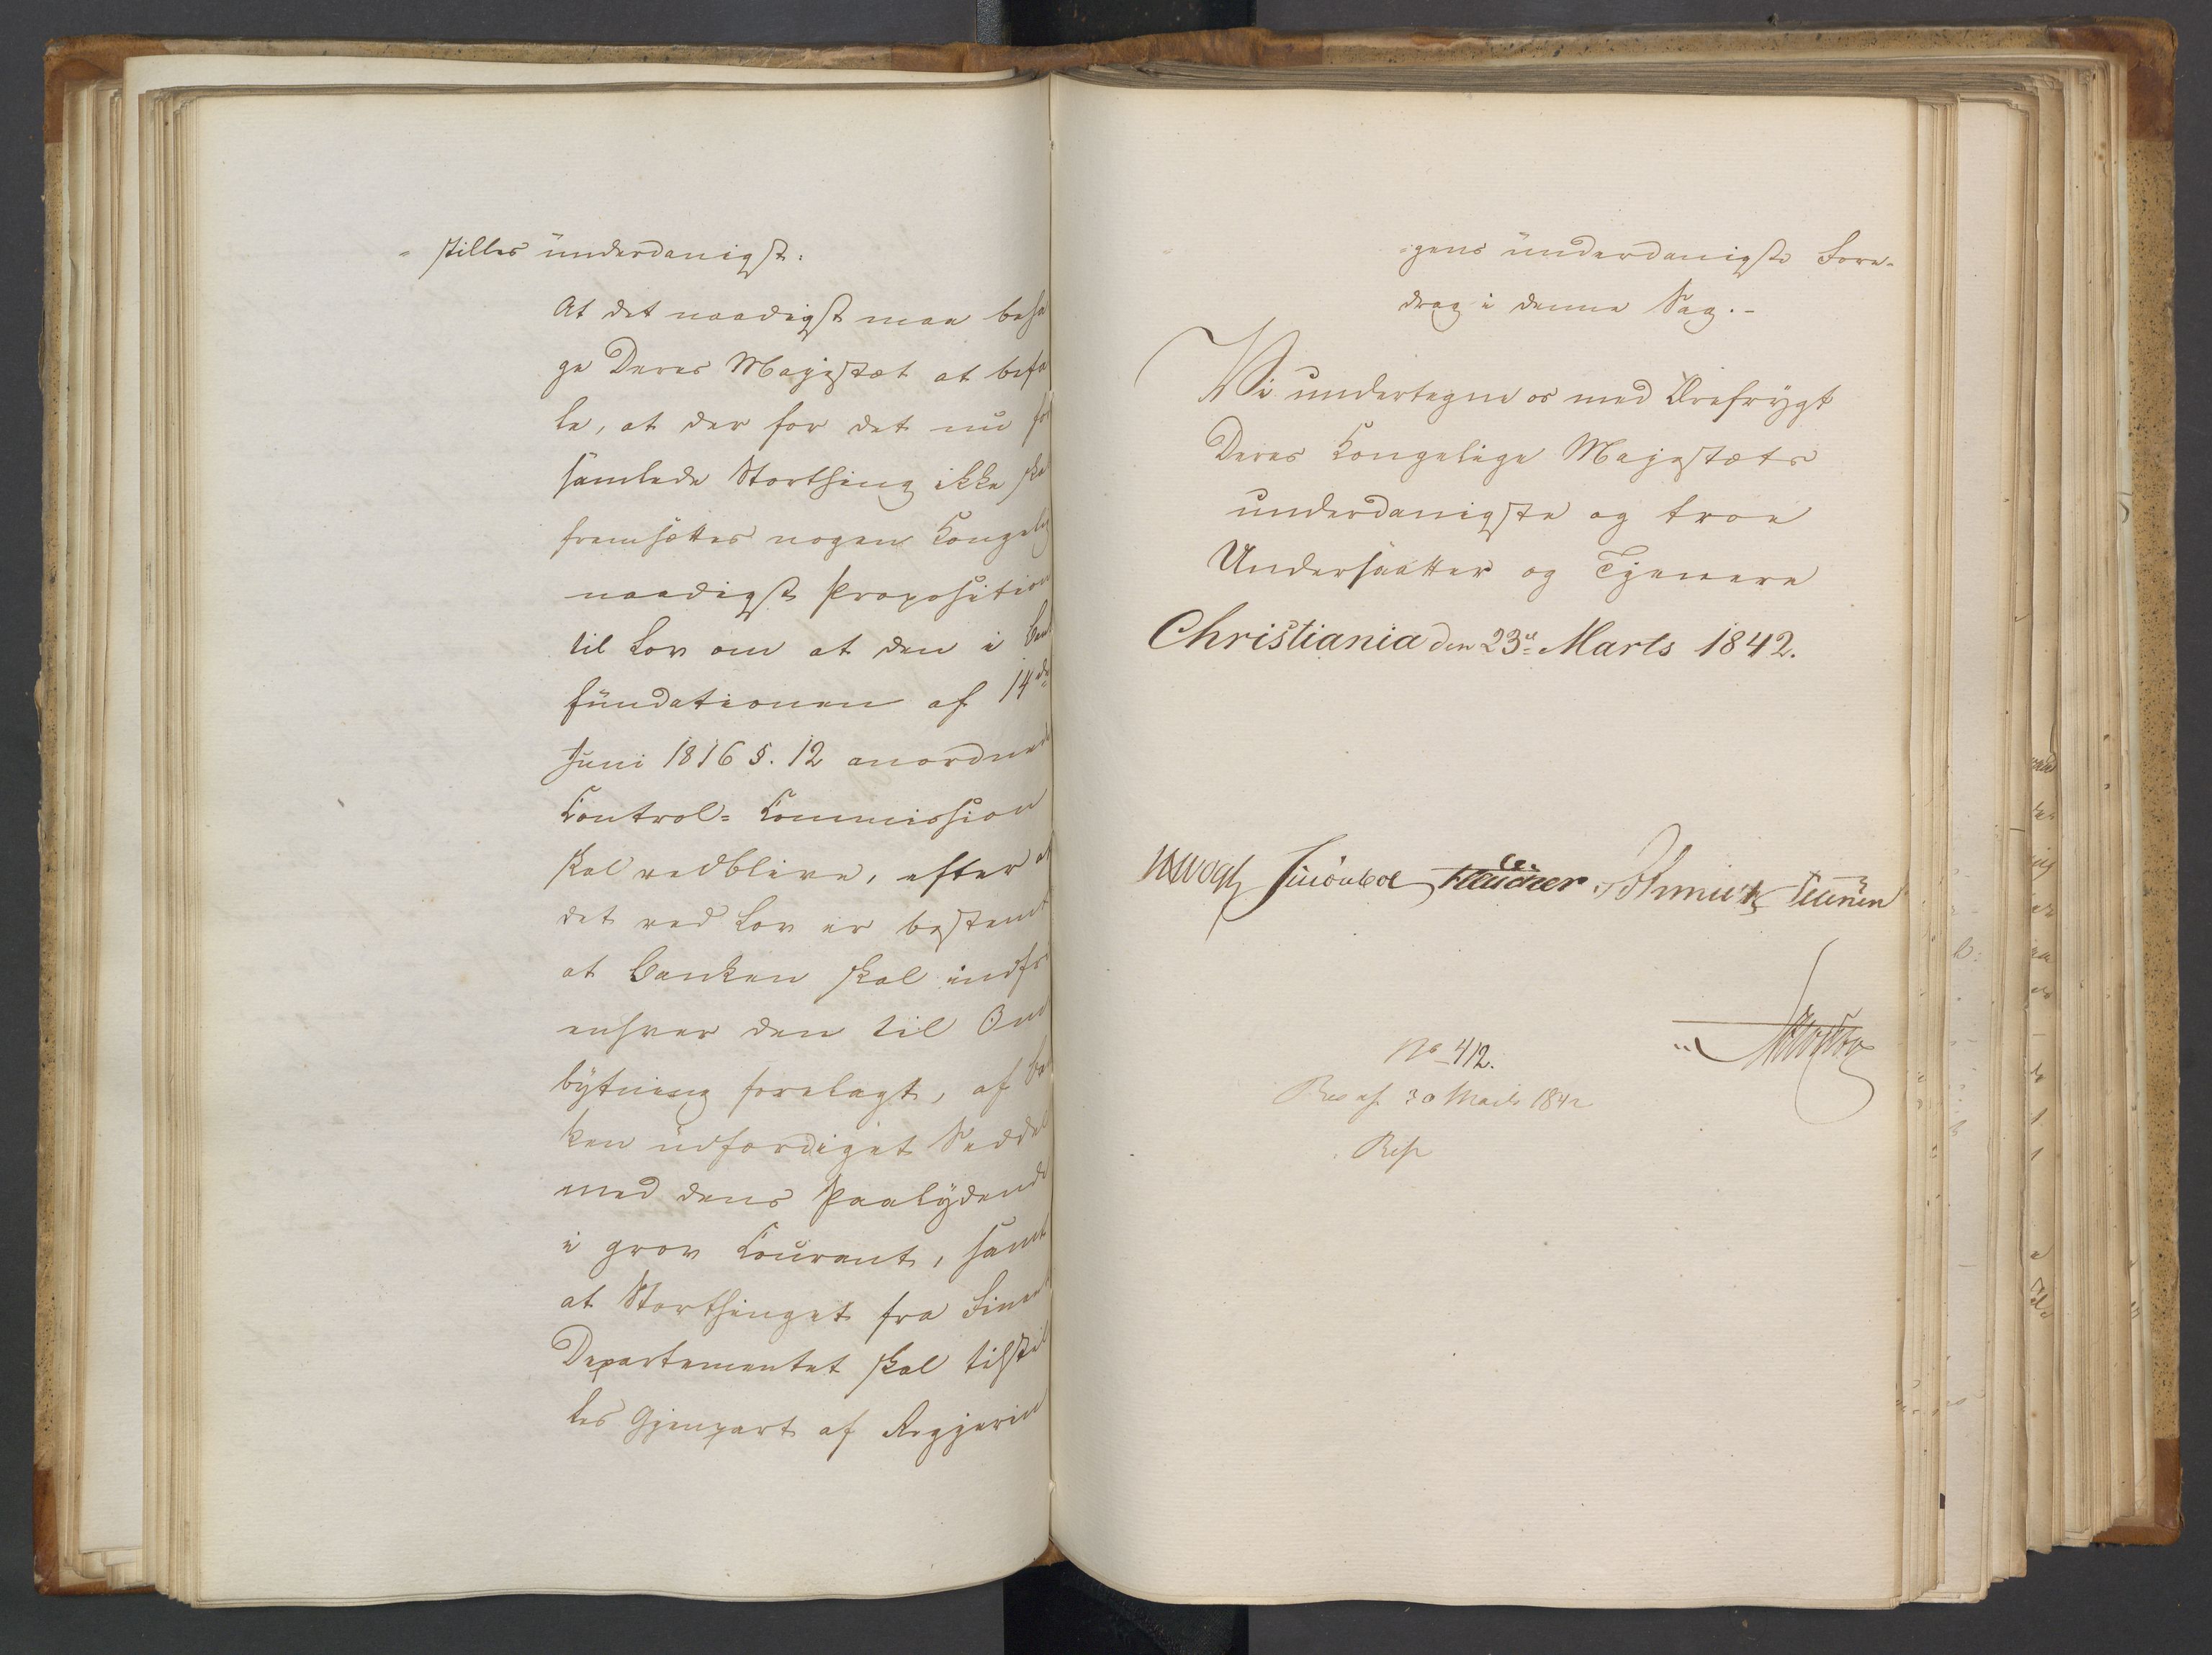 - stilles underdanigst:
At det naadigst maa beha
ge Deres Majestæt at befa
le, at der for det nu for
samlede Storthing ikke ska
fremsættes nogen Kongelig
naadigst Proposition
til Lov om at den i Bank
fundationen af 14de
Juni 1816 §. 12 anordnede
Control- Commission
skal vedblive, efter at
det ved Lov er bestemt
at Banken skal indfri
enhver den til Om
bytning forelagt, af Ban
ken udfærdiget Seddel
med dens Paalydende
i grov Courant, samt
at Storthinget fra Finants
Departementet skal tilstil
les Gjenpart af Regjerin
-gens underdanigste Fore-
drag i denne Sag.-
Vi undertegne os med Ærefrygt
Deres Kongelige Majestæts
underdanigste og troe
Undersaatter og Tjenere
Christiania den 23d Marts 1842.
No 412.
Res af 30 Marts 1842